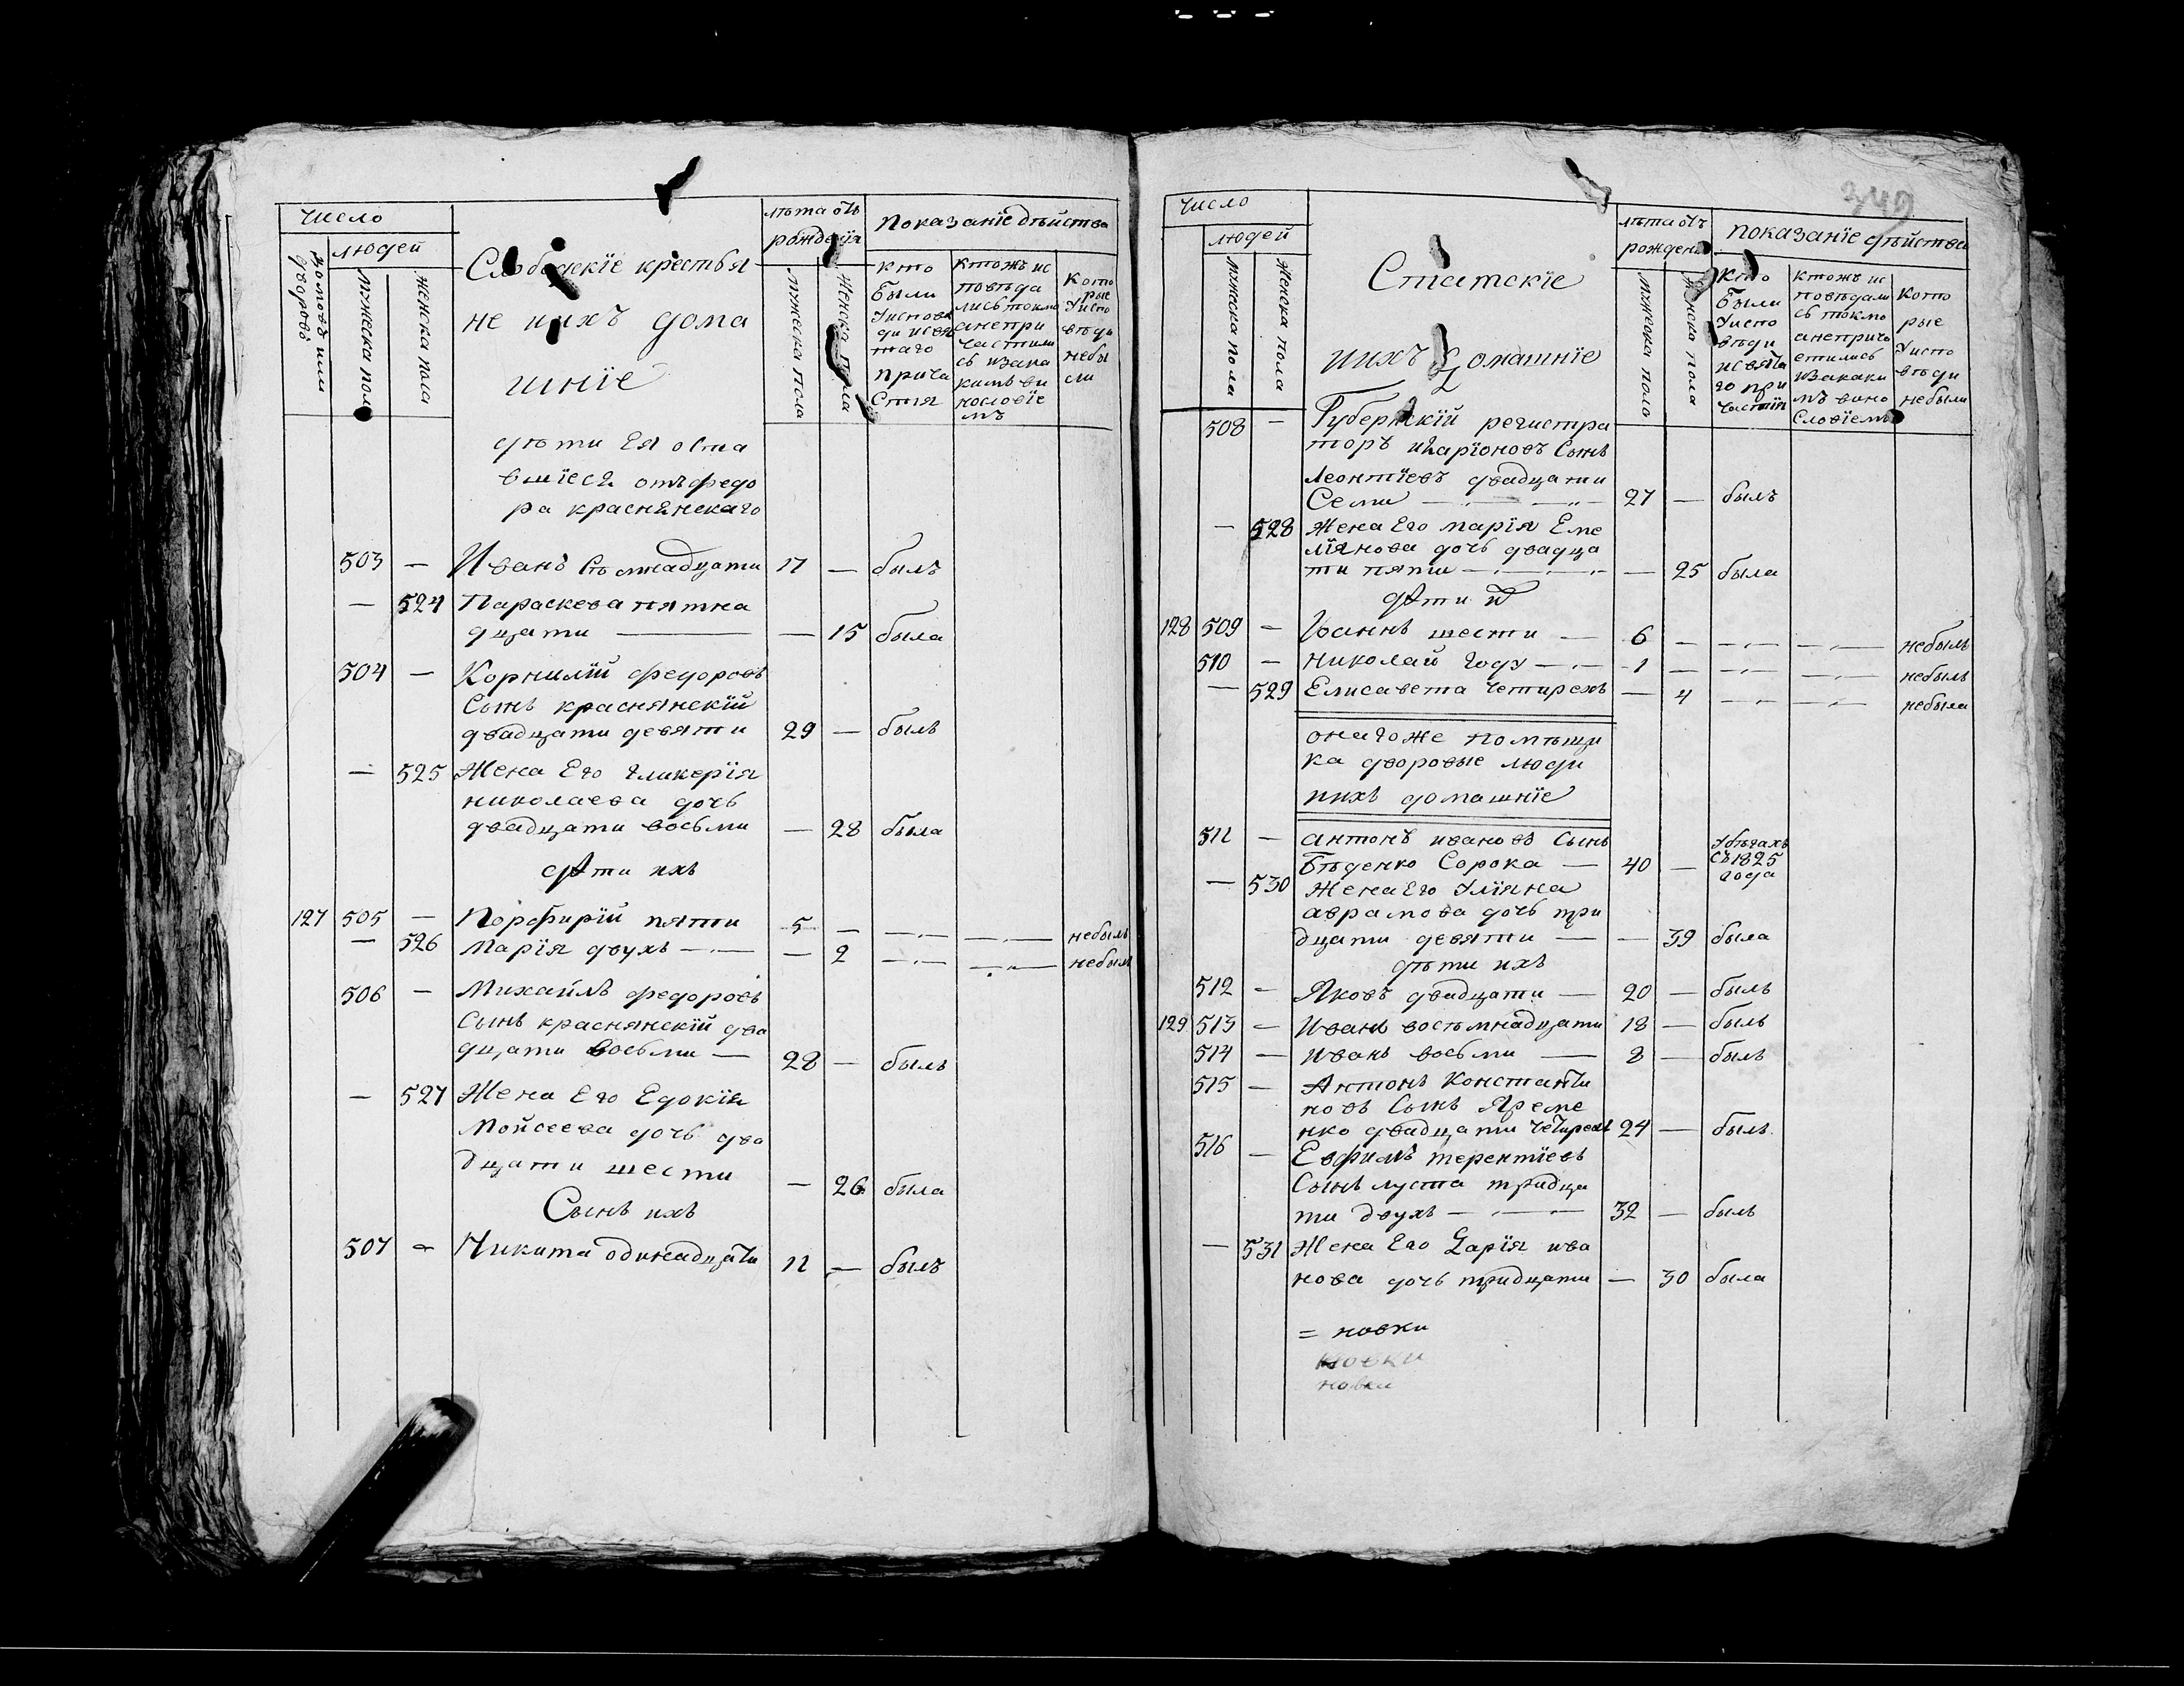 Число
людей
домовъ или дворовъ
мужеска пола
женска пола
Слободскіе крестья
не иихъ дома
шніе
лѣта отъ
рожденія
мужеска пола
женска пола
показаніе дѣйства
кто
были
уиспове
ди исвя
таго
прича
стія
ктожъ ис
повѣда
лись токмо
анепри
частили
сь изака
кимъ ви
нословіе
мъ
Кото
рые
уиспо
вѣди
небы
ли
дѣти Ея оста
вшіеся отъ федо
ра краснянскаго
503 — Иванъ Семнадцати 17 — былъ
— 524 Параскева пятна
дцати — — 15 была
504 — Корнилій федоровъ
Сынъ краснянскій
двадцати девяти 29 — былъ
— 525 Жена Его гликерія
николаева дочь
двадцати восьми — 28 была
дѣти ихъ
127 505 — Порфирій пяти 5 — — — небылъ
— 526 Марія двухъ — — 2 — — небыла
506 — Михаилъ федоровъ
Сынъ краснянскій два
дцати восьми — 28 — былъ
— 527 Жена Его Едокія
Мойсеева дочь два
дцати шести — 26 была
Сынъ ихъ
507 — Никита одинадцати 11 — былъ
349
Число
людей
мужеска пола
женска пола
Статскіе
иихъ Домашніе
лѣта отъ
рожденія
мужеска пола
женска пола
показаніе дѣйства
Кто
были
уиспо
вѣди
исвята
го при
частія
ктожъ ис
повѣдали
сь токмо
анеприча
стились
изакаки
мъ вино
Словіемъ
Кото
рые
уиспо
вѣди
небыли
508 — Губернскій регистра
торъ иларіоновъ Сынъ
Леонтіевъ двадцати
Семи — 27 — былъ
— 528 Жена Его марія Еме
ліянова дочь двадца
ти пяти — — 25 была
дѣти их
128 509 — Іоаннъ шести — 6 — — — небылъ
510 — николай году — 1 — — — небылъ
— 529 Елисавета четирехъ — 4 — — небыла
онагоже помѣщи
ка дворовые люди
иихъ домашніе
511 — антонъ ивановъ Сынъ
Бѣденко Сорока — 40 — убѣгахъ
съ 1825
года
— 530 Жена Его Уліяна
аврамова дочь три
дцати девяти — — 39 была
дѣти ихъ
512 — Яковъ двадцати — 20 — былъ
129 513 — Иванъ восьмнадцати 18 — былъ
514 — Иванъ восьми — 8 — былъ
515 — Антонъ Константи
новъ Сынъ Яреме
нко двадцати четирехъ 24 — былъ
516 — Евфимъ терентіевъ
Сынъ луста тридца
ти двухъ — 32 — былъ
— 531 Жена Его Дарія ива
нова дочь тридцати — 30 была
= новки
новки
новки